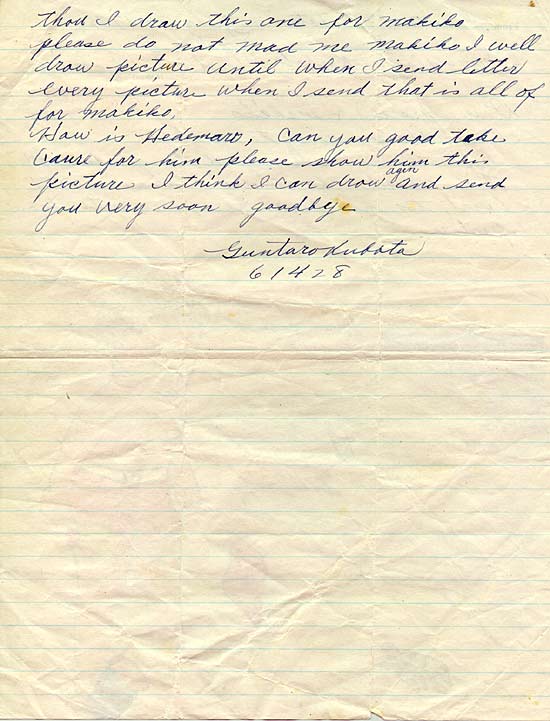 thou I draw this one for makiko
please do not mad me makiko I well
draw picture until when I send letter
every picture when I send that is all of
for makiko.
How is Hedemaro, can you good take
caure for him please show him this
picture I think I can draw agin and send
you very soon goodbye
Guntaro Kubota
61428